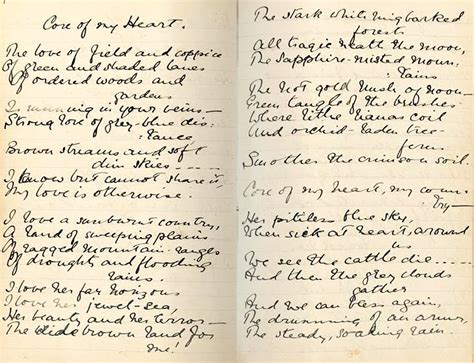 Core of my Heart.
The love of field and coppice
Of green and shaded lanes
Of ordered woods and
gardens
Is running in your veins—
Strong love of grey-blue dis-
tance,
Brown streams and soft
dim skies
I know but cannot share it,
My love is otherwise.
I love a sunburnt country,
A land of sweeping plains
Of ragged mountain ranges
Of droughts and flooding
rains.
I love her far horizons
I love her jewel-sea,
Her beauty and her terror—
The wide brown land for
me!
The stark white ringbarked
forests
All tragic 'neath the moon,
The sapphire-misted moun-
tains
The hot gold hush of noon—
Green tangle of the brushes
Where lithe lianas coil
And orchid-laden tree-
ferns
Smother the crimson soil.
Core of my heart, my coun-
try—
Her pitiless blue sky,
When sick at heart, around
us
We see the cattle die
And then the grey clouds
gather
And we can bless again,
The drumming of an army,
The steady, soaking rain.